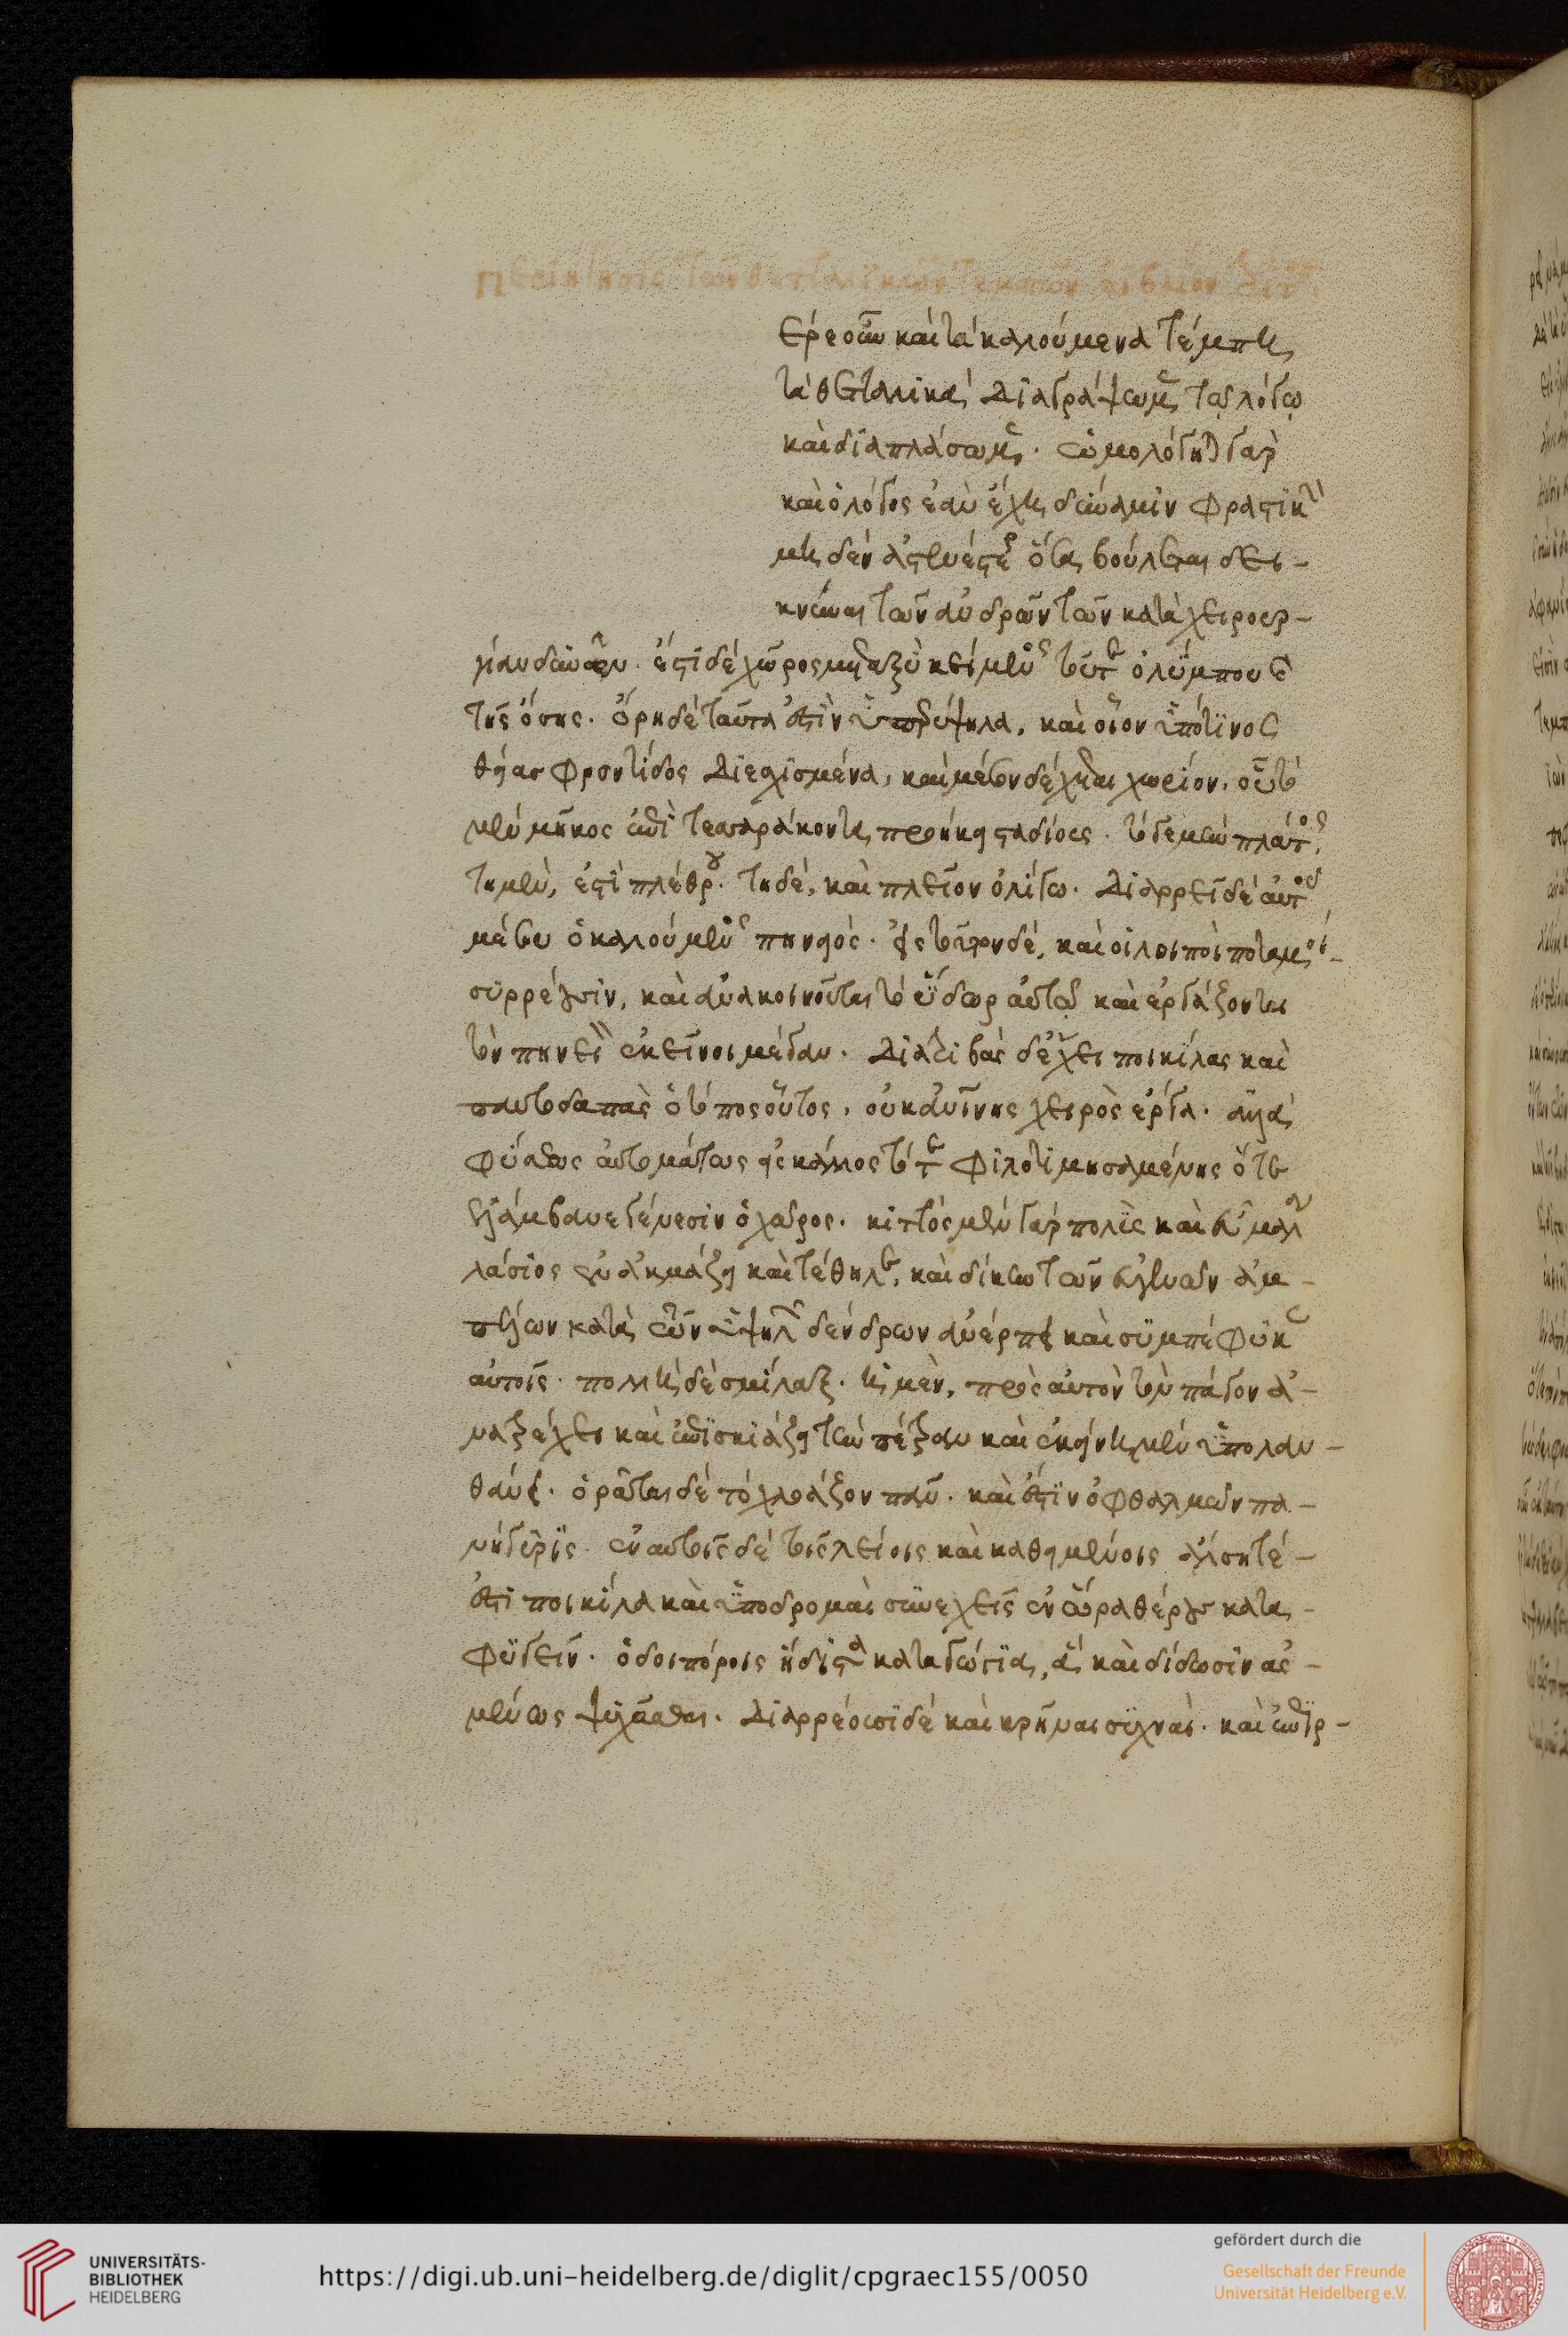 ἑρε οὖν καὶ τὰ καλούμενα τέμπη
τὰ θετταλικὰ διαγράψωμεν τῷ λόγῳ
καὶ διαπλάσωμεν. ὡμολόγηται γὰρ
καὶ ὁ λόγος ἐὰν ἔχῃ δύναμιν φραστικὴν
μηδὲν ἀσθενέστερον ὅσα βούλεται δει-
κνύναι τῶν ἀνδρῶν τῶν κατὰ χειρουρ-
γίαν δεινῶν. ἔστι δὲ χῶρος μεταξὺ κείμενος τοῦ τε ὀλύμπου καὶ
τῆς ὄσσης. ὄρη δὲ ταῦτα ἐστὶν ὑπερύψηλα, καὶ οἷον ὑπό τινος
θείας φροντίδος διεσχισμένα, καὶ μέσον δέχεται χωρίον, οὗ τὸ
μὲν μῆκος ἐπὶ τεσσαράκοντα, προήκει σταδίους. τό γε μὴν πλάτος,
τῇ μὲν, ἐστὶ πλέθρου. τῇ δὲ, καὶ πλεῖον ὀλίγῳ. διαρρεῖ δὲ αὐτοῦ
μέσου ὁ καλούμενος πηνειός. εἰς τοῦτον δὲ, καὶ οἱ λοιποὶ ποταμοὶ
συρρέουσιν, καὶ ἀνακοινοῦνται τὸ ὕδωρ αὐτῷ καὶ ἐργάζονται
τὸν πηνειὸν ἐκεῖνοι μέγαν. διατριβὰς δ' ἔχει ποικίλας καὶ
παντοδαπὰς ὁ τόπος οὗτος, οὐκ ἀνθρωπίνης χειρὸς ἔργα. ἀλλὰ
φύσεως αὐτομάτως εἰς κάλλος τότε φιλοτιμησαμένης ὅτε
ἐλάμβανε γένεσιν ὁ χῶρος. κιττὸς μὲν γὰρ πολὺς καὶ εὖ μάλα
λάσιος ἐνακμάζει καὶ τέθηλε, καὶ δίκην τῶν εὐγενῶν ἀμ-
πέλων κατὰ τῶν ὑψηλῶν δένδρων ἀνέρπει καὶ συμπέφυκεν
αὐτοῖς. πολλὴ δὲ σμίλαξ. ἡ μὲν, πρὸς αὐτὸν τὸν πάγον ἀ-
νατρέχει καὶ ἐπισκιάζει τὴν πέτραν καὶ ἐκείνη μὲν ὑπολαν-
θάνει. ὁρᾶται δὲ τὸ χλοάζον πᾶν. καὶ ἔστιν ὀφθαλμῶν πα-
νήγυρις. ἐν αὐτοῖς δὲ τοῖς λείοις καὶ καθημένοις ἄλση τέ-
ἐστι ποικίλα καὶ ὑποδρομαὶ συνεχεῖς ἐν ὥρα θέρους κατα-
φυγεῖν. ὁδοιπόροις ἥδιστα καταγώγια, ἃ καὶ δίδωσιν ἀσ-
μένως ψυχᾶσθαι. διαρρέουσι δὲ καὶ κρῆναι συχναὶ. καὶ ἐπιρ-
UNIVERSITÄTS-
BIBLIOTHEK
HEIDELBERG
https://digi.ub.uni-heidelberg.de/diglit/cpgraec155/0050
gefördert durch die
Gesellschaft der Freunde
Universität Heidelberg e.V.